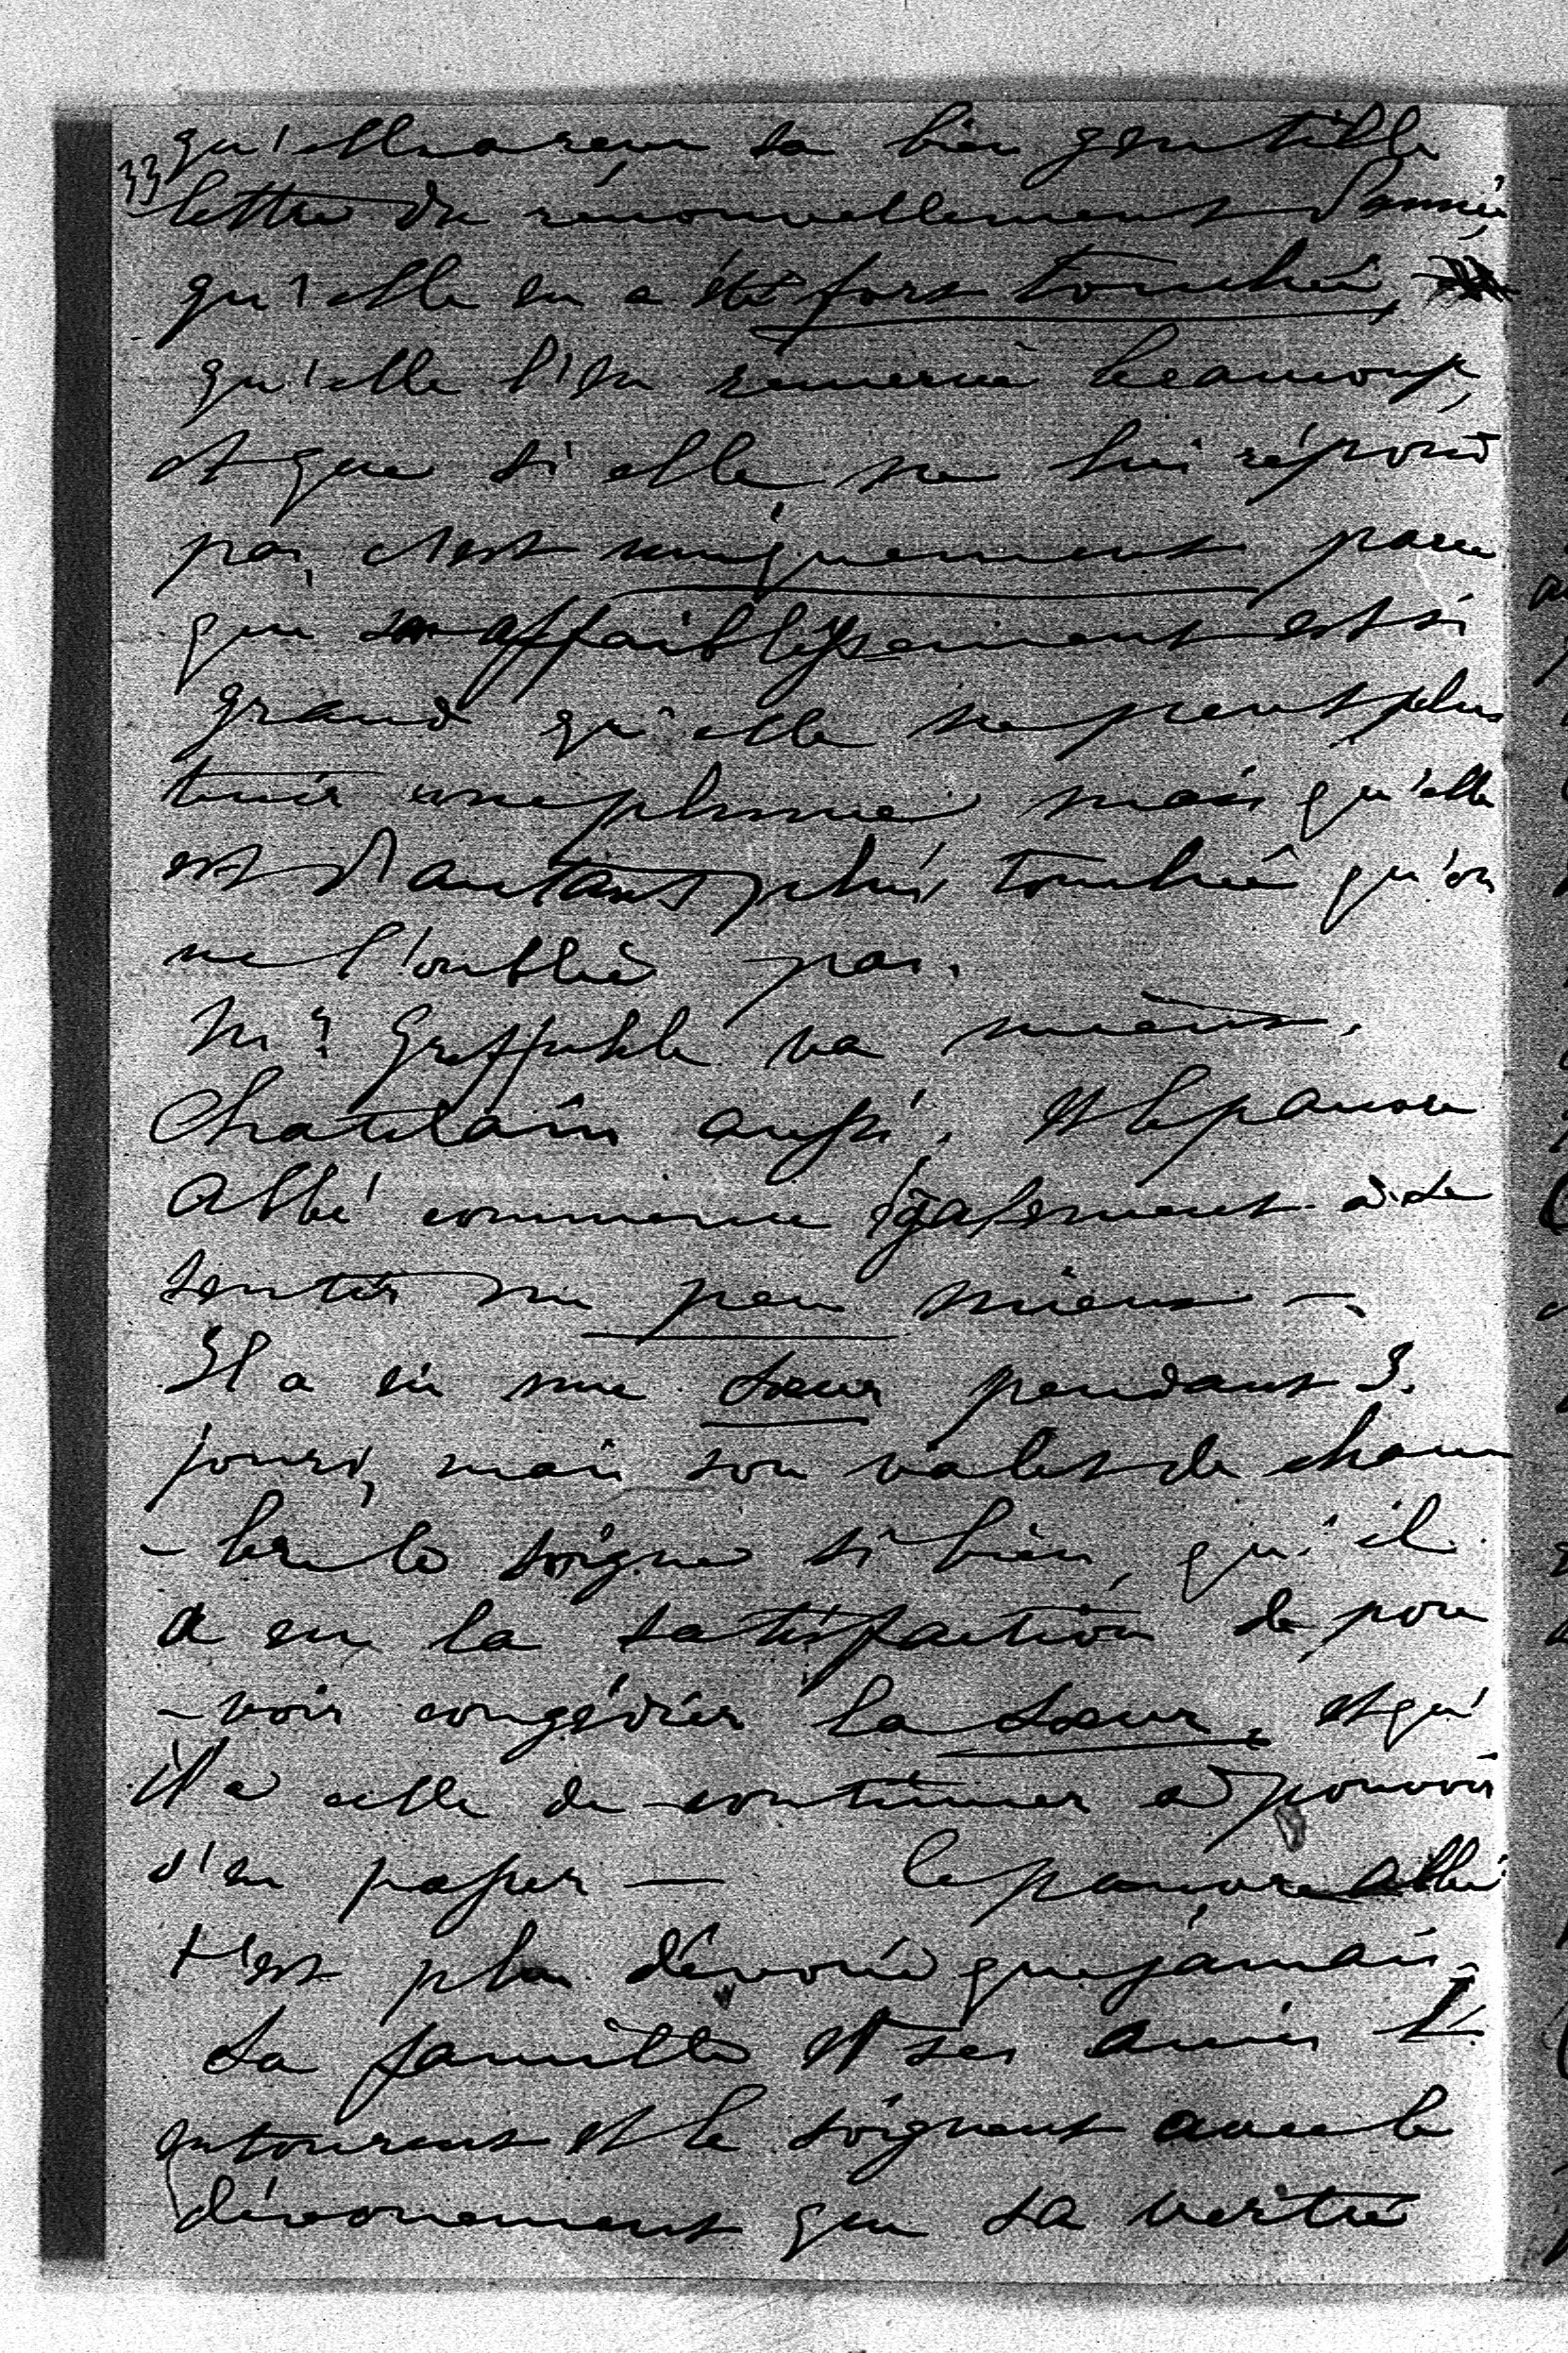 qu'elle a reçu sa bien gentille
33 lettre du renouvellement d'année,
qu'elle en a été fort touchée,
qu'elle l'en remercie beaucoup,
et que si elle ne lui répond
pas, c'est uniquement parce
que son affaiblissement est si
grand qu'elle ne peut plus
tenir une plume mais qu'elle
est d'autant plus touchée qu'on
ne l'oublie pas.
Mr Greffulhe va mieux.
Chatelain aussi. Et le pauvre
Abbé commence également à se
sentir un peu mieux —.
Il a eu une sœur pendant 3.
jours, mais son valet de cham
- bre le soigne si bien, qu'il
a eu la satisfaction de pou
- voir congédier la sœur, et qu'
il a celle de continuer à pouvoir
s'en passer — le pauvre abbé
t'est plus dévoué que jamais.
Sa famille et ses amis l'
entourent et le soignent avec le
dévouement que sa vertu